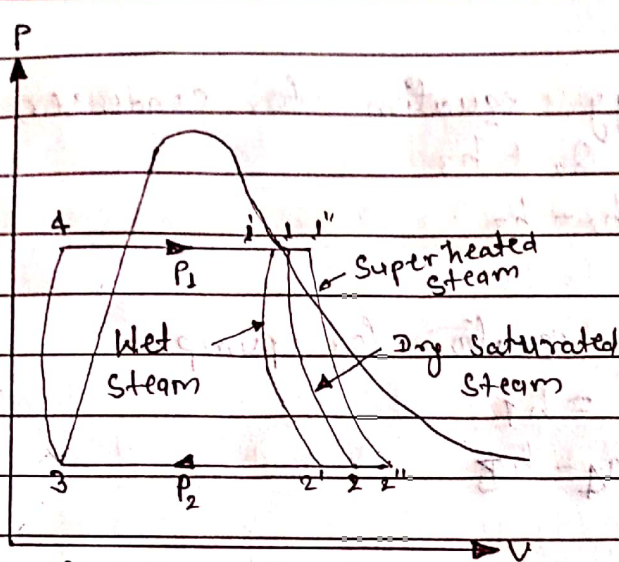 P
4 1' 1 1"
P1
Superheated
steam
Wet
steam
Dry saturated
steam
3 P2 2' 2 2"
V